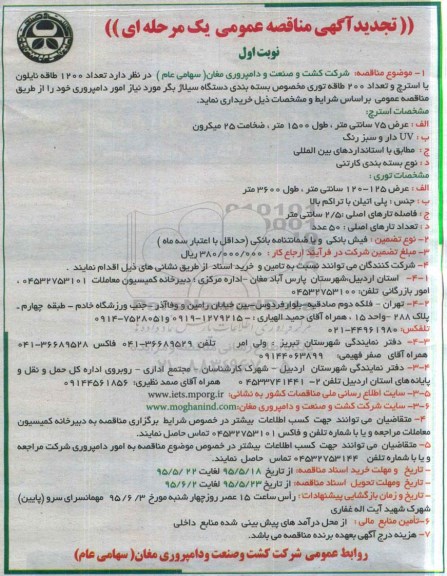 (( تجدید آگهی مناقصه عمومی یک مرحله ای ))
نوبت اول
۱- موضوع مناقصه: شرکت کشت و صنعت و دامپروری مغان( سهامی عام ) در نظر دارد تعداد ۱۲۰۰ طاقه نایلون
یا استرچ و تعداد ۲۰۰ طاقه توری مخصوص بسته بندی دستگاه سیلاژ بگر مورد نیاز امور دامپروری خود را از طریق
مناقصه عمومی براساس شرایط و مشخصات ذیل خریداری نماید.
مشخصات استرچ:
الف: عرض ۷۵ سانتی متر ، طول ۱۵۰۰ متر ، ضخامت ۲۵ میکرون
ب : UV دار و سبز رنگ
ج : مطابق با استانداردهای بین المللی
د : نوع بسته بندی کارتنی
مشخصات توری :
الف: عرض ۱۲۵-۱۲۰ سانتی متر ، طول ۳۶۰۰ متر
ب: جنس : پلی اتیلن با تراکم بالا
ج: فاصله تارهای اصلی :۲/۵ سانتی متر
د: تعداد تارهای اصلی : ۵۰ عدد
۲- نوع تضمین : فیش بانکی و یا ضمانتنامه بانکی (حداقل با اعتبار سه ماه )
۳- مبلغ تضمین شرکت در فرآیند ارجاع کار : ۳۸۰/۰۰۰/۰۰۰ ریال
۴- شرکت کنندگان می توانند نسبت به تامین و خرید اسناد از طریق نشانی های ذیل اقدام نمایند .
۴-۱- استان اردبیل،شهرستان پارس آباد مغان -اداره مرکزی : دبیرخانه کمیسیون معاملات ۰۴۵۳۲۷۵۳۱۰۱
امور بازرگانی تلفن: ۰۴۵۳۲۷۵۳۱۰۰
۴-۲- تهران - فلکه دوم صادقیه- بلوار فردوس-بین خیابان رامین و وفاآذر -جنب ورزشگاه خادم - طبقه چهارم -
پلاک ۲۸۸ -واحد ۱۵ ، همراه آقای حمید الهیاری : ۱۲۷۹۲۱۵-۰۹۱۹ و ۷۵۲۸۰۵۱-۰۹۱۴
تلفکس: ۴۴۹۶۱۹۸۰-۰۲۱
۳-۳- دفتر نمایندگی شهرستان تبریز : ولی امر تلفن ۳۶۶۸۹۵۲۹-۰۴۱ فاکس ۳۶۶۸۹۵۲۸-۰۴۱
همراه آقای صفر فهیمی: ۰۹۱۴۴۰۶۳۸۹۹
۳-۴- دفتر نمایندگی شهرستان اردبیل - شهرک کارشناسان - مجتمع اداری - روبروی اداره کل حمل و نقل و
پایانه های استان اردبیل تلفن ۲- ۰۴۵۳۳۷۴۱۴۴۱ همراه آقای صمد نظیری: ۰۹۱۴۴۵۶۱۸۵۶
۳-۵- سایت اطلاع رسانی ملی مناقصات کشور به نشانی: www.iets.mporg.ir
۳-۶- سایت شرکت کشت و صنعت و دامپروری مغان:www.moghanind.com
۴- متقاضیان می توانند جهت کسب اطلاعات بیشتر در خصوص شرایط برگزاری مناقصه به دبیرخانه کمیسیون
معاملات مراجعه و یا با شماره تلفن و فاکس ۰۴۵۳۲۷۵۳۱۰۱ تماس حاصل نمایند.
۵- متقاضیان می توانند جهت کسب اطلاعات بیشتر در خصوص موضوع مناقصه به امور دامپروری شرکت مراجعه
و یا با شماره تلفن ۰۴۵۳۲۷۵۳۱۴۴ تماس حاصل نمایند.
- تاریخ و مهلت خرید اسناد مناقصه: از تاریخ ۹۵/۵/۱۸ لغایت ۹۵/۵/۲۲
- تاریخ ومهلت تحویل اسناد مناقصه: از تاریخ ۹۵/۵/۲۳ لغایت ۹۵/۶/۲
- تاریخ و زمان بازگشایی پیشنهادات : راس ساعت ۱۵ عصر روزچهار شنبه مورخ ۹۵/۶/۳ مهمانسرای سرو (پایین)
شهرک شهید آیت اله غفاری
۶-تأمین منابع مالی : از محل درآمد های پیش بینی شده منابع داخلی
۷- هزینه درج آگهی بعهده برنده مناقصه می باشد.
روابط عمومی شرکت کشت وصنعت ودامپروری مغان( سهامی عام)